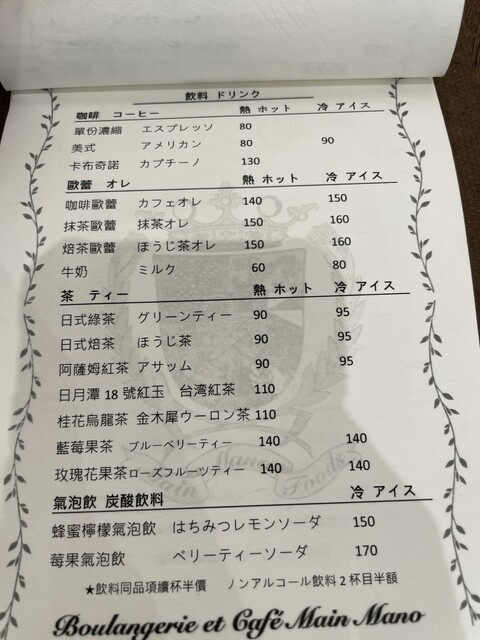 飲料 ドリンク
咖啡 コーヒー 熱 ホット 冷 アイス
單份濃縮 エスプレッソ 80
美式 アメリカン 80 90
卡布奇諾 カプチーノ 130
歐蕾 オレ 熱 ホット 冷 アイス
咖啡歐蕾 カフェオレ 140 150
抹茶歐蕾 抹茶オレ 150 160
焙茶歐蕾 ほうじ茶オレ 150 160
牛奶 ミルク 60 80
茶 ティー 熱 ホット 冷 アイス
日式綠茶 グリーンティー 90 95
日式焙茶 ほうじ茶 90 95
阿薩姆紅茶 アサッム 90 95
日月潭 18 號紅玉 台湾紅茶 110
桂花烏龍茶 金木犀ウーロン茶 110
藍莓果茶 ブルーベリーティー 140 140
玫瑰花果茶 ローズフルーツティー 140 140
氣泡飲 炭酸飲料 冷 アイス
蜂蜜檸檬氣泡飲 はちみつレモンソーダ 150
莓果氣泡飲 ベリーティーソーダ 170
★飲料同品項續杯半價 ノンアルコール飲料 2 杯目半額
Boulangerie et Café Main Mano
Main Mano Foods